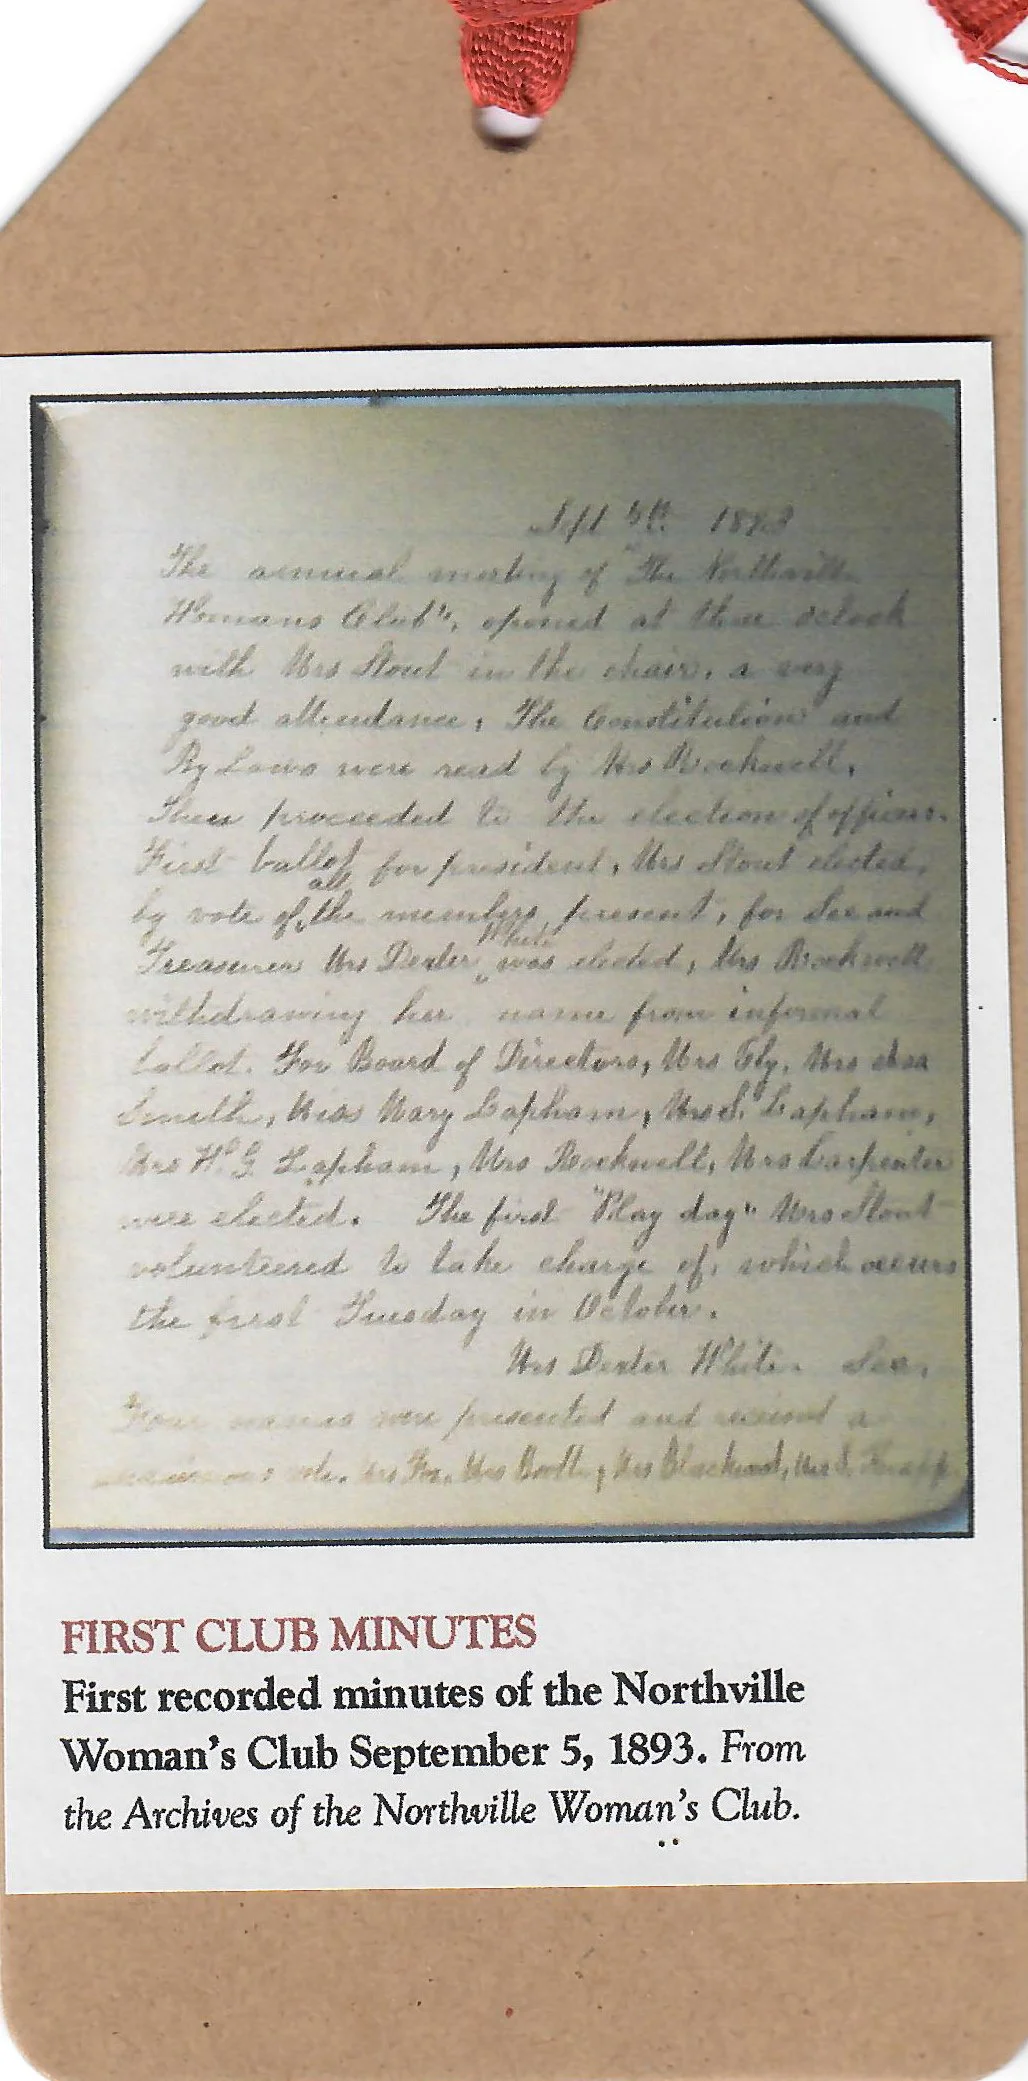 Sept 5th 1893
The annual meeting of "The Northville
Womans Club", opened at three oclock
with Mrs Stout in the chair, a very
good attendance, The Constitution and
By Laws were read by Mrs Rockwell,
Then proceeded to the election of officers.
First ballot for president, Mrs Stout elected,
by vote of all the members present, for Sec and
Treasurer Mrs Dexter White was elected, Mrs Rockwell
withdrawing her name from informal
ballot. For Board of Directors, Mrs Ely, Mrs Asa
Smith, Miss Mary Lapham, Mrs S. Lapham,
Mrs W. G. Lapham, Mrs Rockwell, Mrs Carpenter
were elected. The first "Play day" Mrs Stout
volunteered to take charge of, which occurs
the first Tuesday in October.
Mrs Dexter White. Sec.
Four names were presented and received a
unanimous vote. Mrs Booth, Mrs Blackwood, Knapp
FIRST CLUB MINUTES
First recorded minutes of the Northville
Woman's Club September 5, 1893. From
the Archives of the Northville Woman's Club.